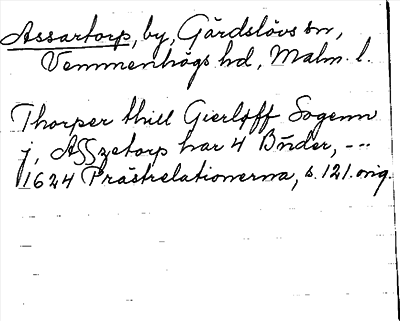 Assartorp, by, Gärdslövs sn,
Vemmenhögs hd, Malm. l.
Thorper thill Gierlöff Sogenn
j, Aſſzetorp har 4 Bůder, ---
1624 Prästrelationerna, s. 121. orig.